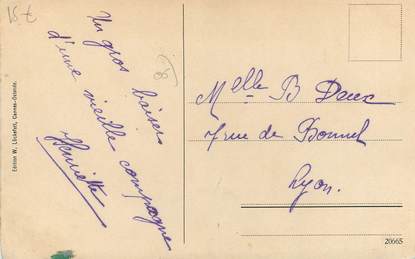 15 €
Un gros baiser
d'une vieille compagne
Henriette
Melle B Deux
7 rue de Bonnel
Lyon.
Edition W. Lückefett, Cannes-Ostende.
20665